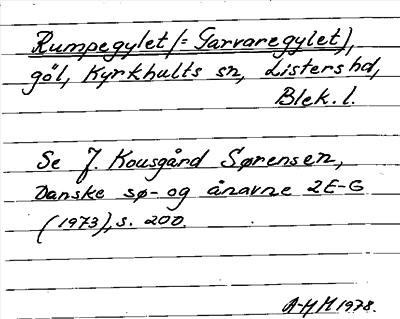 Rumpegylet (= Garvaregylet),
göl, Kyrkhults sn, Listers hd,
Blek. l.
Se J. Kousgård Sørensen,
Danske sø- og ånavne 2E-G
(1973), s. 200.
A-M M 1978.